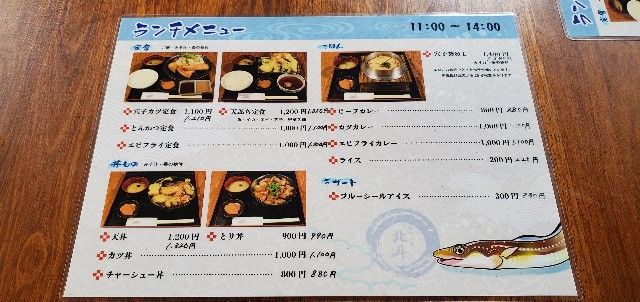 ランチメニュー
11:00 ～ 14:00
定食
穴子カツ定食 1,100円 1,210円
天ぷら定食 1,200円 1,320円
とんかつ定食 1,000円 1,100円
エビフライ定食 1,000円 1,100円
丼もの
天丼 1,200円 1,320円
とり丼 900円 990円
カツ丼 1,000円 1,100円
チャーシュー丼 800円 880円
ごはん
ビーフカレー 800円 880円
カツカレー 1,000円 1,100円
エビフライカレー 1,000円 1,100円
ライス 200円 220円
デザート
ブルーシールアイス 300円
北斗